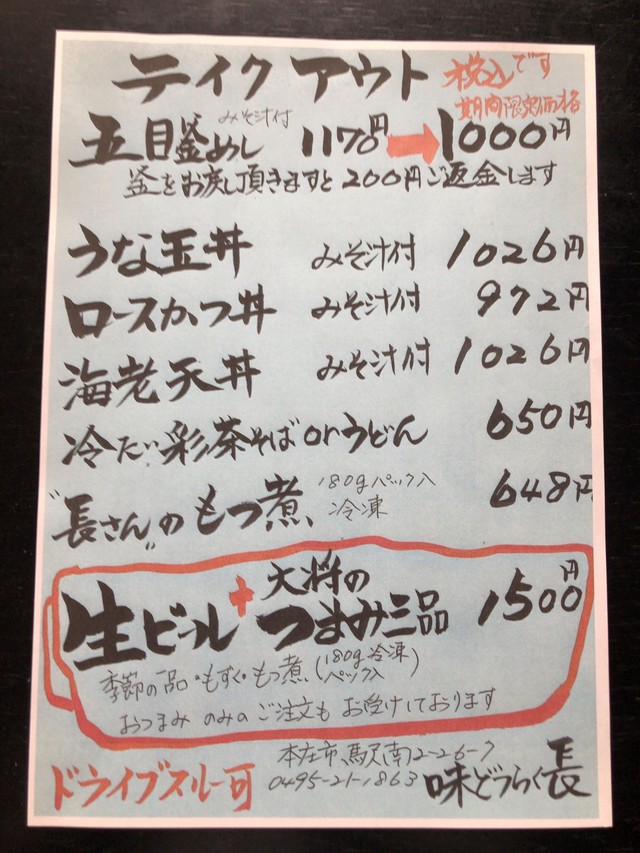 テイクアウト 税込です
期間限定価格
みそ汁付
五目釜めし 1170円→1000円
釜をお戻し頂きますと200円ご返金します
うな玉丼 みそ汁付 1026円
ロースかつ丼 みそ汁付 972円
海老天丼 みそ汁付 1026円
冷たい彩茶そばorうどん 650円
"長さん"のもつ煮 180gパック入 冷凍 648円
生ビール+大将のつまみ三品 1500円
季節の一品・もずく・もつ煮(180g冷凍パック入)
おつまみのみのご注文もお受けしております
ドライブスルー可
本庄市駅南2-26-7
0495-21-1863
味どうらく長